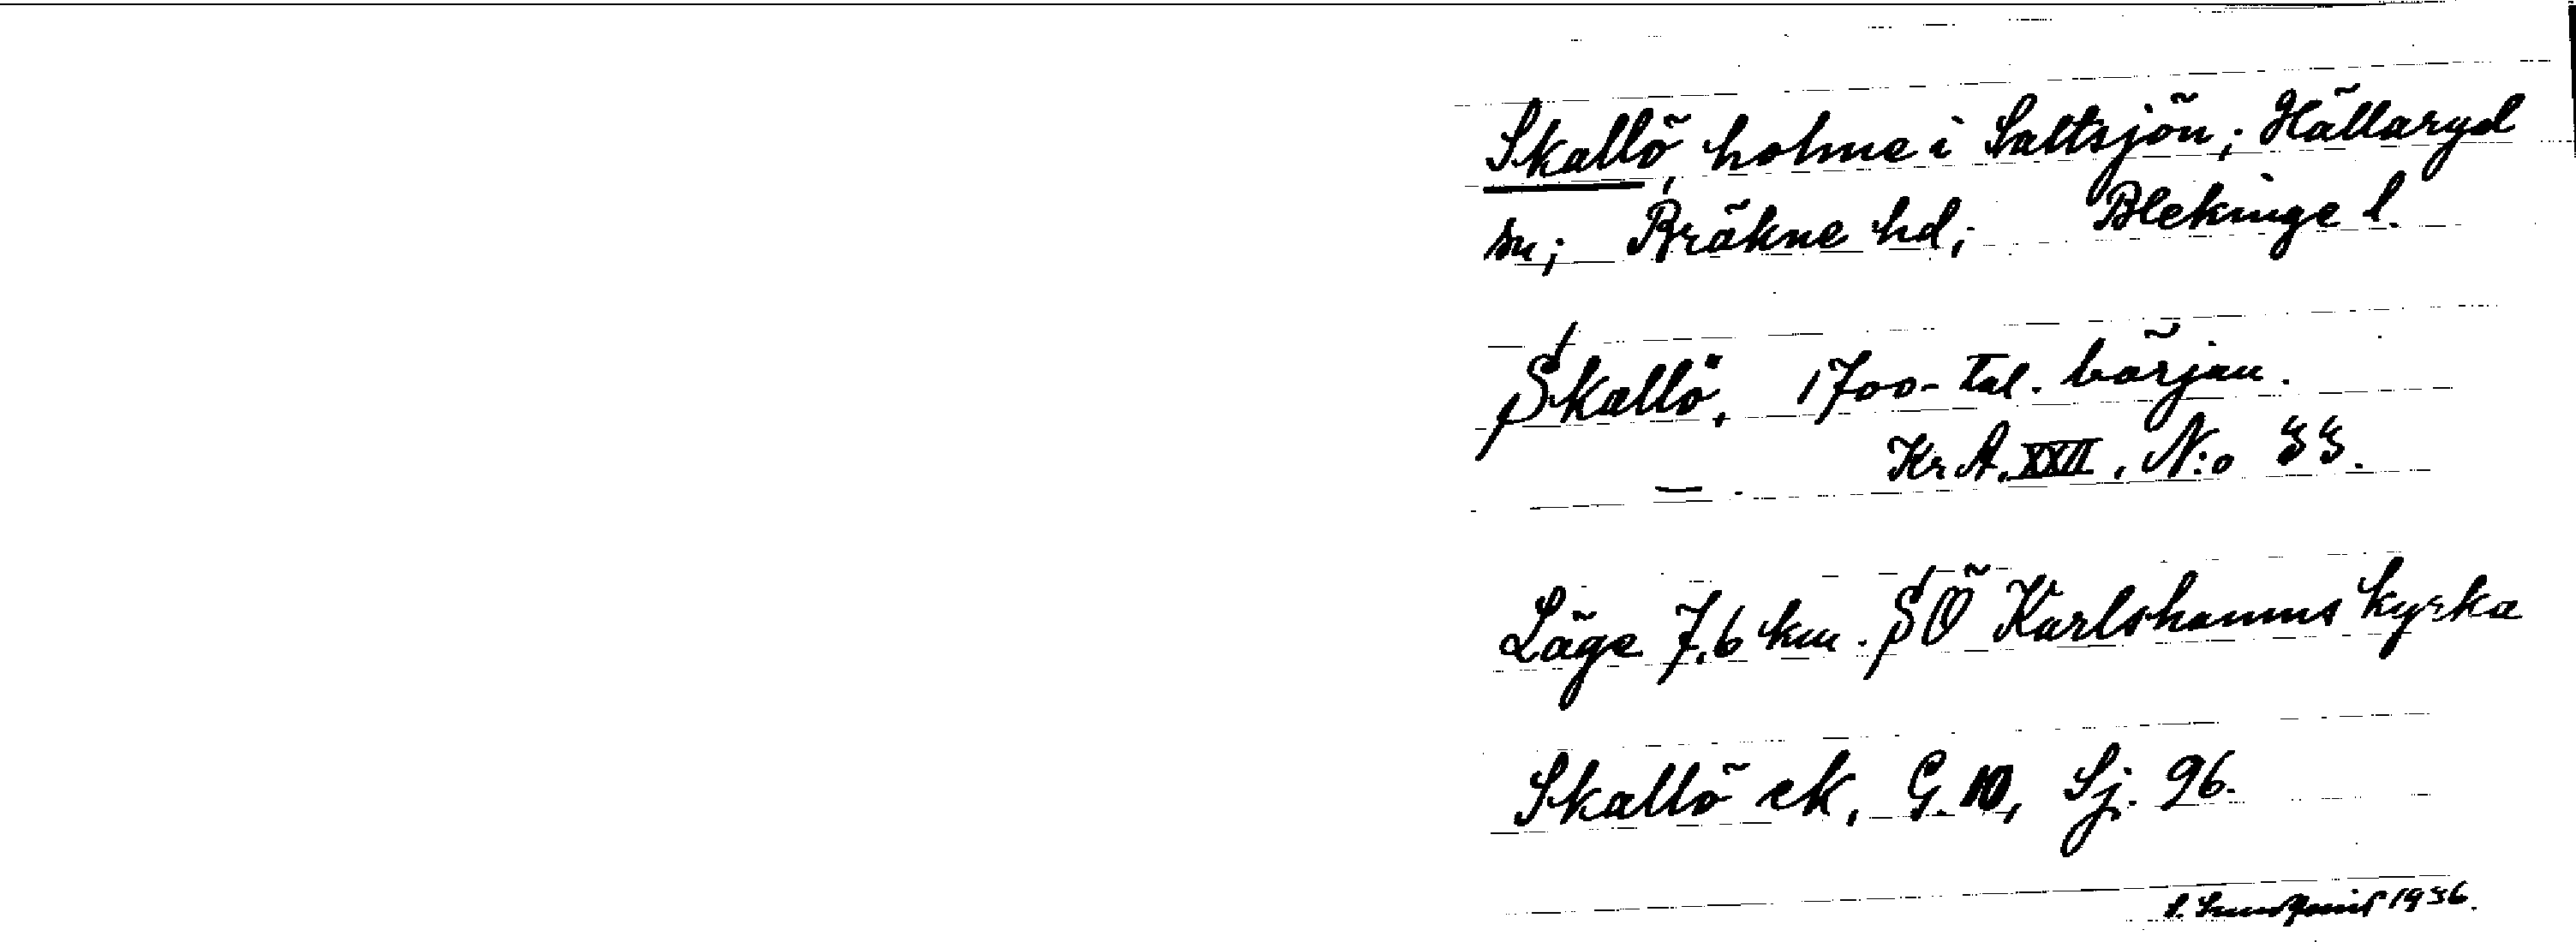 Skallö, holme i Saltsjön; Hällaryd
sn; Bräkne hd; Blekinge l.
Skallö, 1700-tal. början.
Kr A. XXII, N:o 33.
Läge 7,6 km. SÖ Karlshamns kyrka
Skallö ek, G. 10, Sj. 96.
1936.